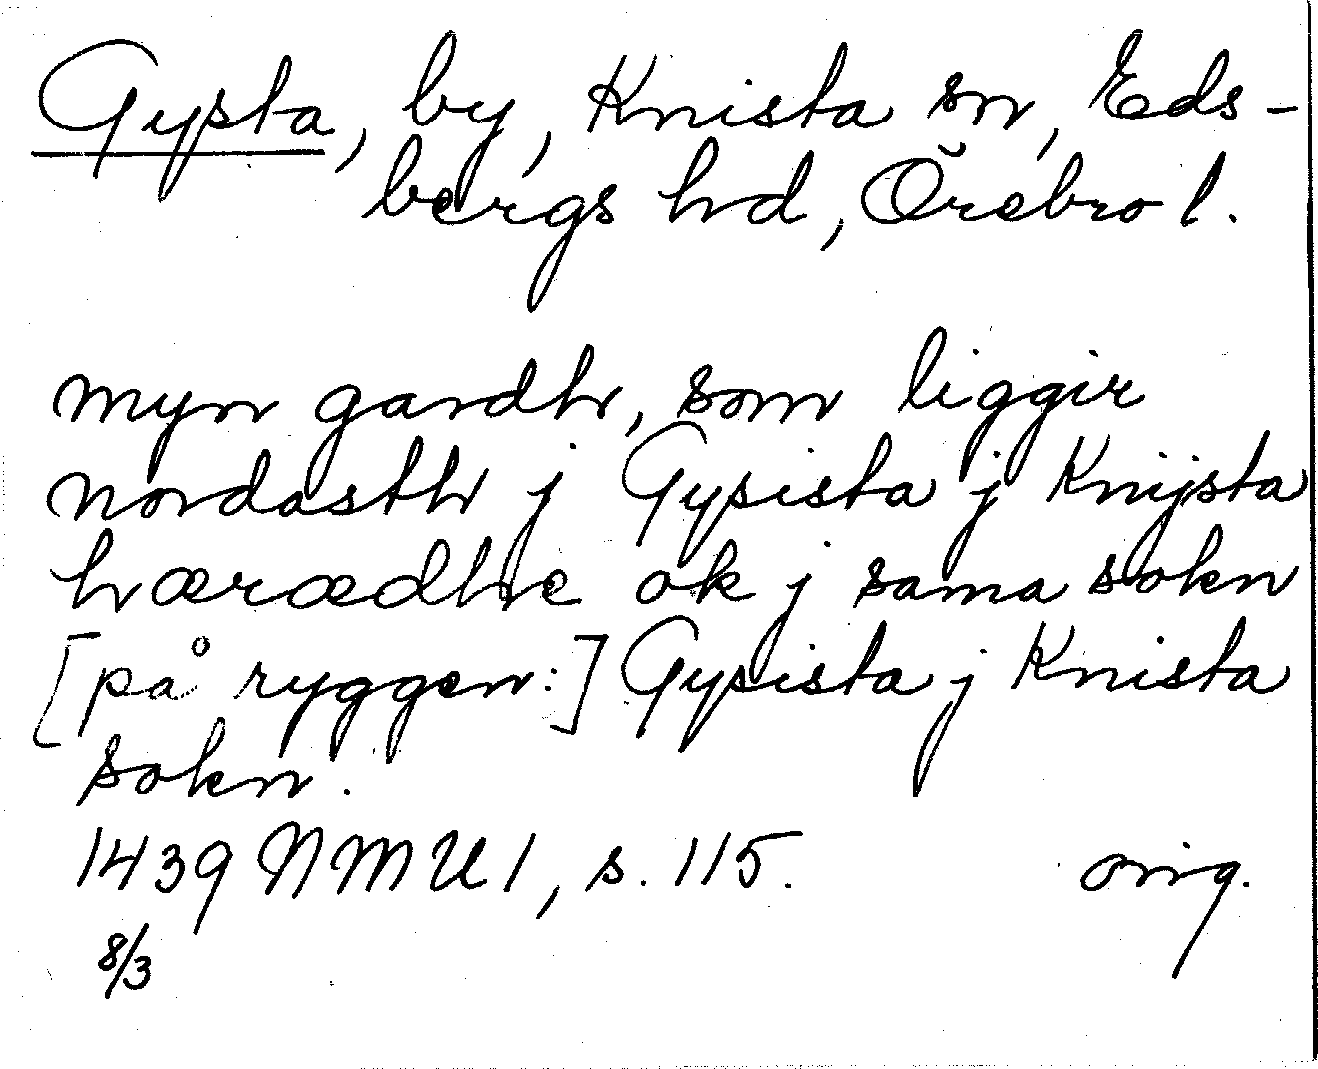 Gypsta, by, Knista sn, Eds-
bergs hd, Örebro l.
myn gardh, som liggir
nordasth j Gypsista j Knijsta
hærædhe ok j sama sokn
[på ryggen:] Gypsista j Knista
sokn.
1439 NMU 1, s. 115. orig.
8/3